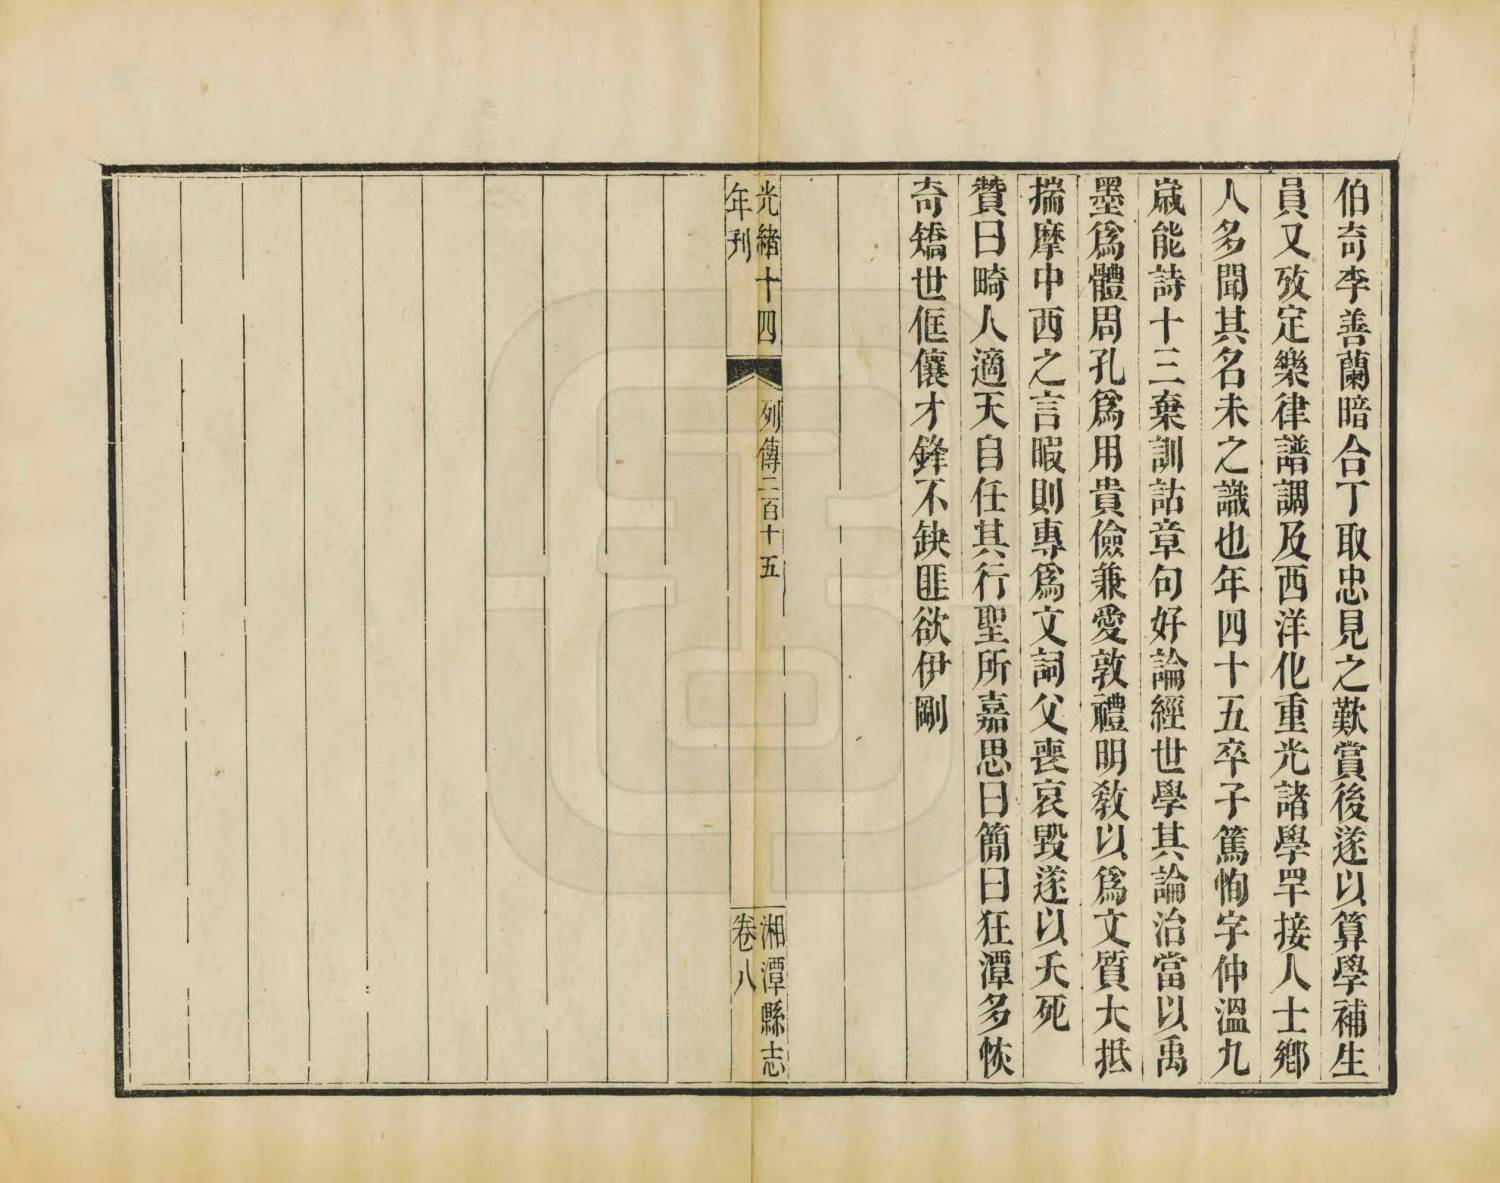 伯奇李善蘭暗合丁取忠見之歎賞後遂以算學補生
員又攷定樂律譜調及西洋化重光諸學罕接人士鄉
人多聞其名未之識也年四十五卒子篤恂字仲溫九
歲能詩十三棄訓詁章句好論經世學其論治當以禹
墨爲體周孔爲用貴儉兼愛敦禮明敎以爲文質大抵
揣摩中西之言暇則專爲文詞父喪哀毀遂以夭死
贊曰畸人適天自任其行聖所嘉思曰簡曰狂潭多恢
奇矯世俇儴才鋒不缺匪欲伊剛
光緒十四
年刊
列傳二百十五
湘潭縣志
卷八